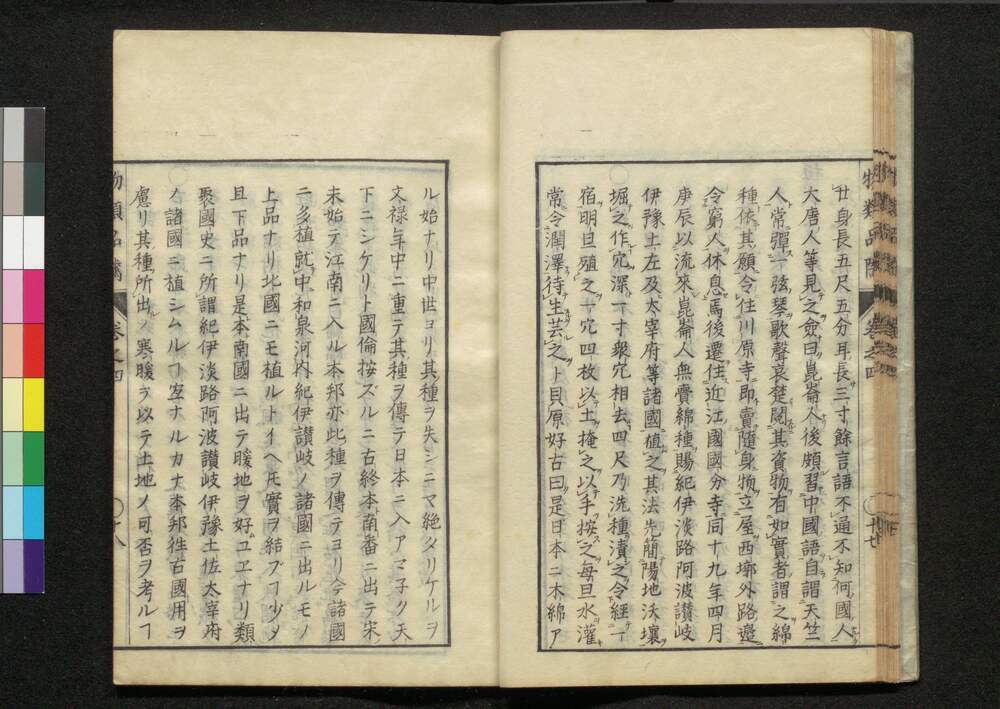 廿身長五尺五分耳長三寸餘言語不通不知何國人
大唐人等見之僉曰崑崙人後頗習中國語自謂天竺
人常彈一弦琴歌聲哀楚閱其資物有如實者謂之綿
種依其願令住川原寺即賣隨身物立屋西墎外路邉
令窮人休息焉後遷住近江國國分寺同十九年四月
庚辰以流來崑崙人無賷綿種賜紀伊淡路阿波讃岐
伊豫土左及太宰府等諸國植之其法先簡陽地沃壤
堀之作穴深一寸衆穴相去四尺乃洗種漬之令經一
宿明旦殖之一穴四枚以土掩之以手按之毎旦水灌
常令潤澤待生芸之ト貝原好古曰是日本ニ木綿ア
物類品隲 卷之四 十七
ル始ナリ中世ヨリ其種ヲ失シニマ絶タリケルヲ
文禄年中ニ重テ其種ヲ傳テ日本ニ入アマ子ク天
下ニシケリト國倫按ズルニ古終本南番ニ出テ宋
末始テ江南ニ入ル本邦亦此種ヲ傳テヨリ今諸國
ニ多植就中和泉河内紀伊讃岐ノ諸國ニ出ルモノ
上品ナリ北國ニモ植ルトイヘ𪜈實ヲ結ブヿ少メ
且下品ナリ是本南國ニ出テ暖地ヲ好ユヱナリ類
聚國史ニ所謂紀伊淡路阿波讃岐伊豫土佐太宰府
ノ諸國ニ植シムルヿ宜ナルカナ本邦徃古國用ヲ
慮リ其種所出ノ寒暖ヲ以テ土地ノ可否ヲ考ルヿ
物類品隲 卷之四 十八